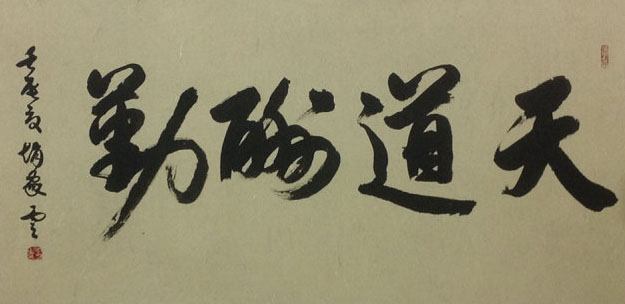 天道酬勤
壬辰夏